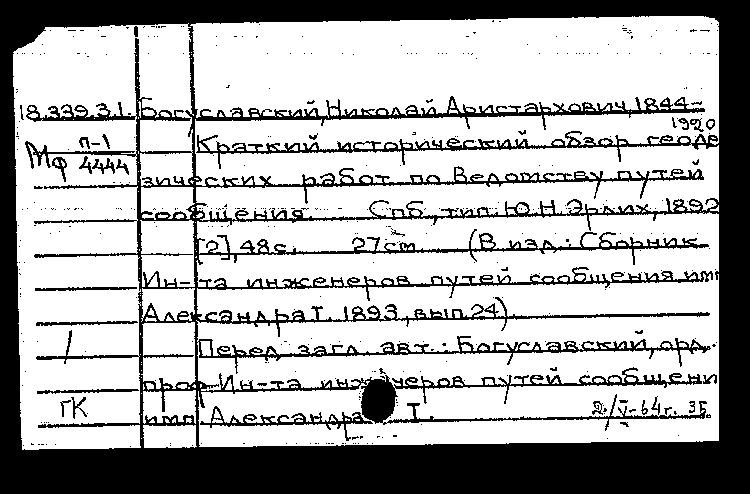 18.339.3.1. Богуславский, Николай Аристархович, 1844-
1920
Мф п-1/4444 Краткий исторический обзор геоде
зических работ по Ведомству путей
сообщения. Спб., тип. Ю.Н. Эрлих, 1892
[2], 48 с. 27 см (В изд.: Сборник
Ин-та инженеров путей сообщения имп
Александра I. 1893, вып. 24)
/ Перед загл. авт.: Богуславский, орд.
проф. Ин-та инженеров путей сообщени
ГК имп. Александра I. 2/V-64г.